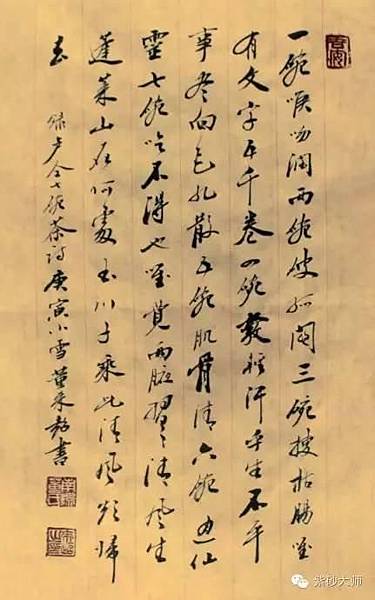 一碗喉吻潤两碗破孤闷三碗搜枯腸唯
有文字五千卷四碗發輕汗平生不平
事盡向毛孔散五碗肌骨清六碗通仙
靈七碗吃不得也唯覺两腋習習清風生
蓬萊山在何處玉川子乘此清風欲歸
去
錄卢仝七碗茶诗庚寅小雪書
紫砂大师